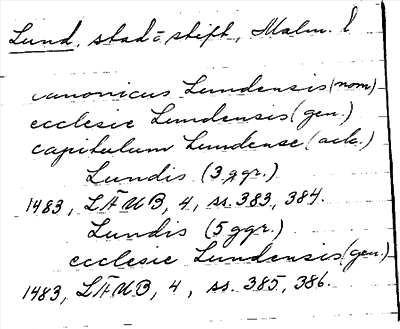 Lund, stad o stift, Malm. l
canonicus Lundensis (nom)
ecclesie Lundensis (gen.)
capitulum Lundense (ack.)
Lundis (3 ggr.)
1483, LÄUB, 4, ss. 383, 384.
Lundis (5 ggr.)
ecclesie Lundensis (gen.)
1483, LÄUB, 4, ss. 385, 386.